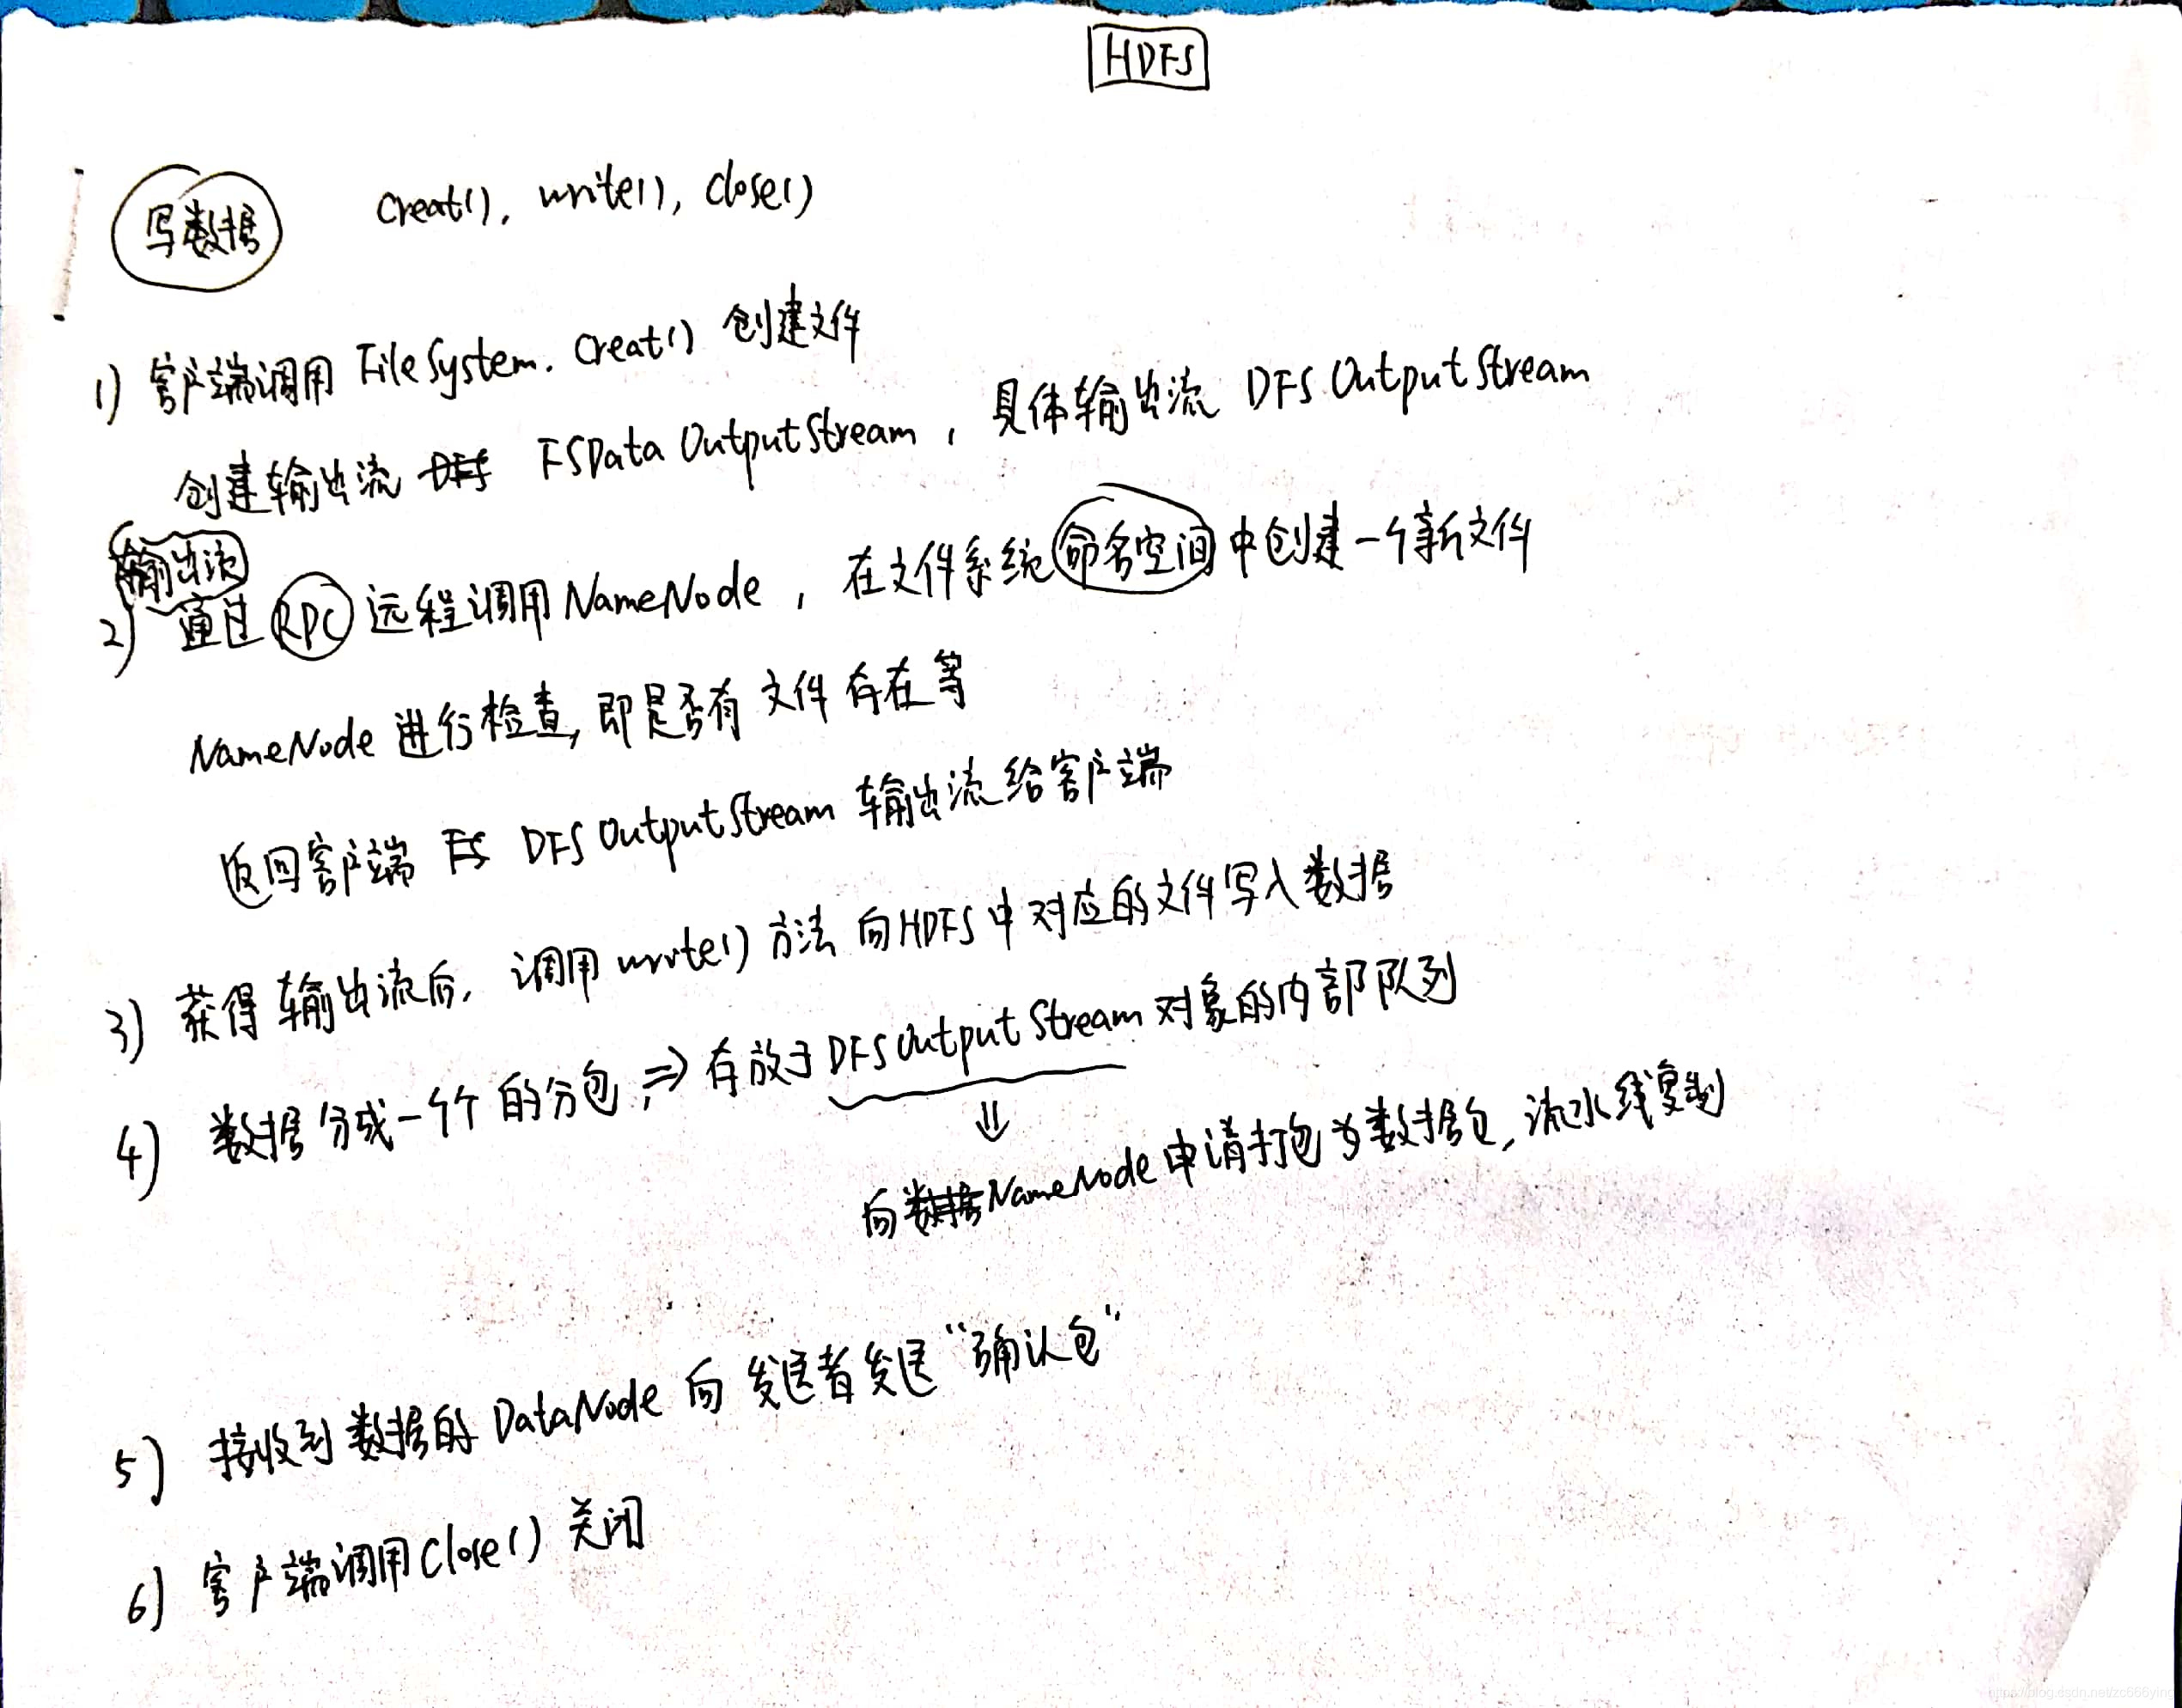 HDFS
写数据 creat(), write(), close()
1) 客户端调用 FileSystem. creat() 创建文件
创建输出流 FSData OutputStream , 具体输出流 DFS OutputStream
输出流
2) 通过 RPC 远程调用 NameNode , 在文件系统命名空间中创建一个新文件
NameNode 进行检查, 即是否有文件存在等
返回客户端 FS DFS OutputStream 输出流给客户端
3) 获得输出流后, 调用 write() 方法向HDFS中对应的文件写入数据
4) 数据分成一个个的分包, ⇒ 存放于DFSOutputStream对象的内部队列
⇓
向数据NameNode申请打包为数据包, 流水线复制
5) 接收到数据的 DataNode 向发送者发送“确认包”
6) 客户端调用 close() 关闭